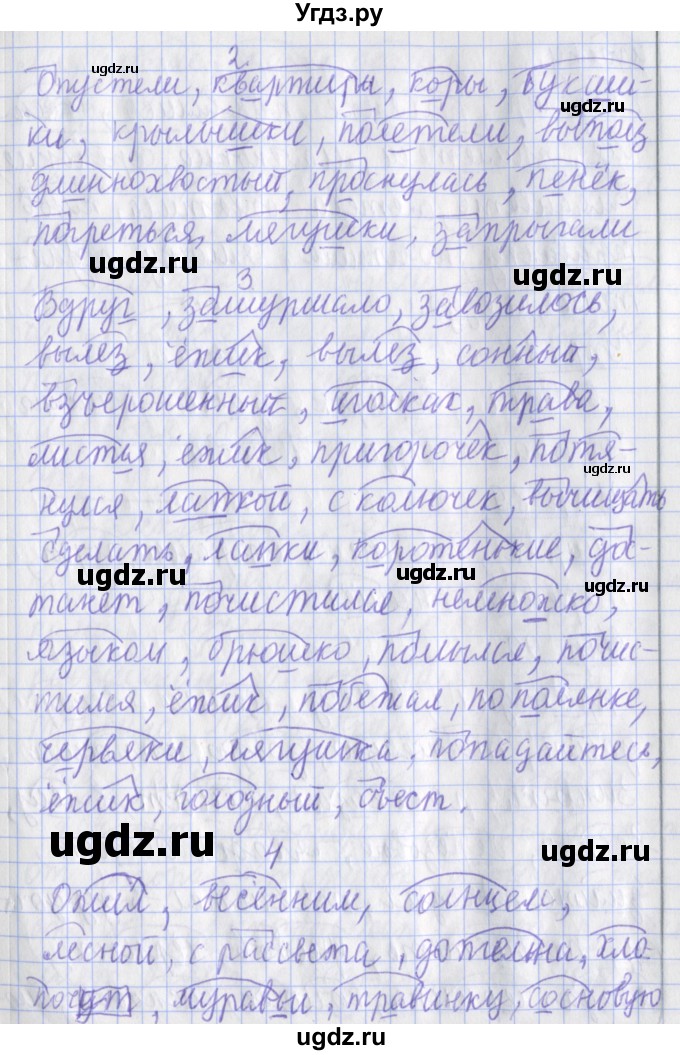 Угдз.ру
2
Опустели, квартиры, коры, букаш-
ки, крылышки, полетели, выполз
длиннохвостый, проснулась, пенёк,
погреться, лягушки, запрыгали
3
Вдруг, зашуршало, завозилось,
вылез, ёжик, вылез, сонный,
взъерошенный, иголках, трава,
листья, ёжик, пригорочек, потя-
нулся, лапкой, с колючек, вычищать
сделать, лапки, коротенькие, дос-
танет, почистился, немножко,
языком, брюшко, помылся, почис-
тился, ёжик, побежал, по полянке,
червяки, лягушка, попадайтесь,
ёжик, голодный, съест.
4
Ожил, весенним, солнцем,
лесной, с рассвета, дотемна, хло-
почут, муравьи, травинку, сосновую
ugdz.ru
ugdz.ru
ugdz.ru
ugdz.ru
ugdz.ru
ugdz.ru
ugdz.ru
ugdz.ru
ugdz.ru
ugdz.ru
ugdz.ru
ugdz.ru
ugdz.ru
ugdz.ru